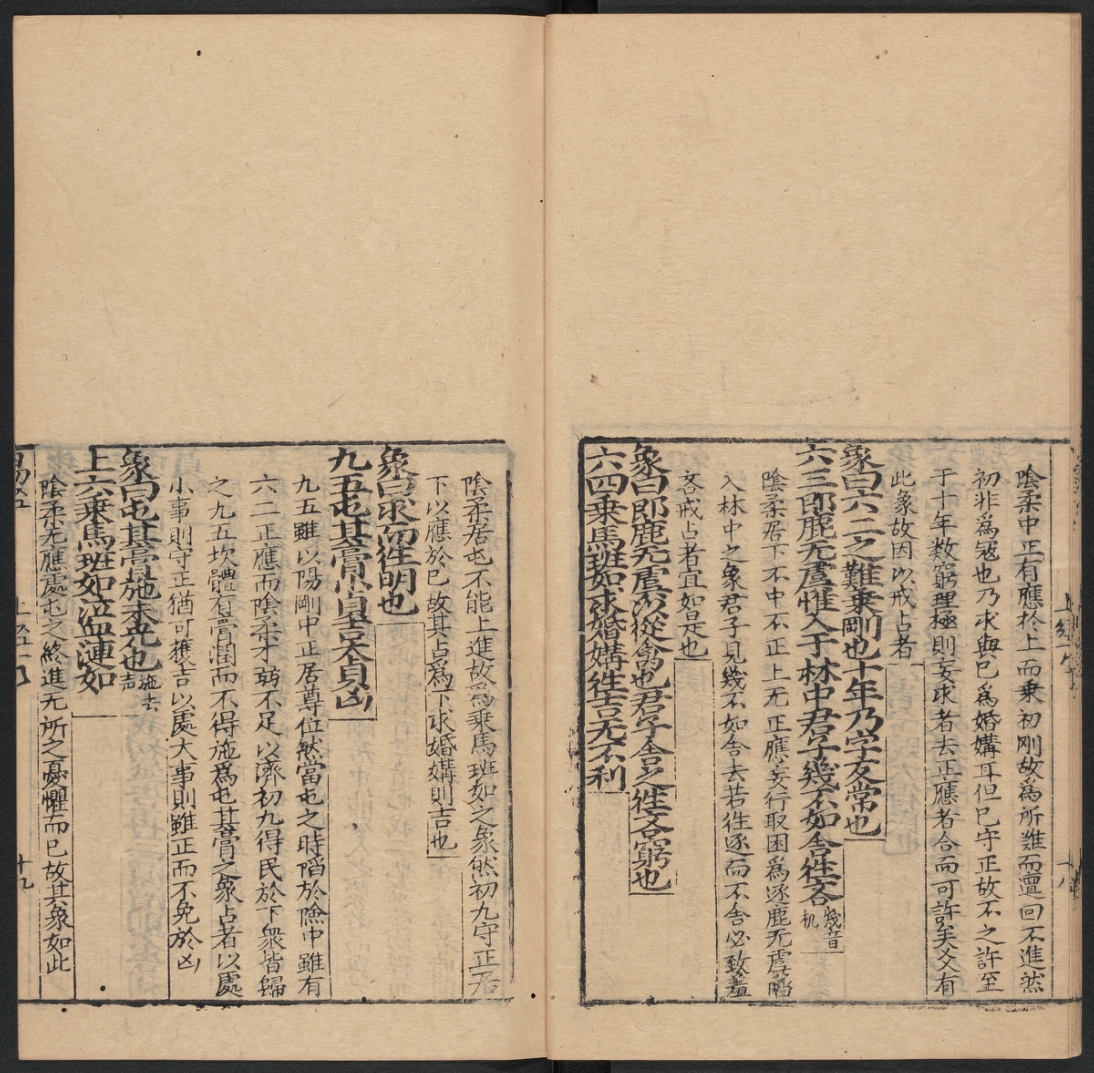 陰柔中正有應於上而乘初剛故為所難而邅回不進然
初非為寇也乃求與已為婚媾耳但已守正故不之許至
于十年数窮理極則妄求者去正應者合而可許矣爻有
此象故因以戒占者
象曰六二之難乗剛也十年乃字反常也
六三即鹿无虞惟入于林中君子幾不如舍徃吝幾音机
陰柔居下不中不正上无正應妄行取困為逐鹿无虞䧟
入林中之象君子見幾不如舍去若徃逐而不舍必致羞
吝戒占者宜如是也
象曰即鹿无虞以從禽也君子舍之徃吝窮也
六四乗馬班如求婚媾徃吉无不利
陰柔居屯不能上進故為乗馬班如之象然初九守正居
下以應於已故其占為下求婚媾則吉也
象曰求而徃明也
九五屯其膏小貞吉大貞凶
九五雖以陽剛中正居尊位然當屯之時陷於險中雖有
六二正應而陰柔才弱不足以濟初九得民於下衆皆歸
之九五坎體有膏潤而不得施為屯其膏之象占者以處
小事則守正猶可獲吉以處大事則雖正而不免於凶
象曰屯其膏施未光也施去声
上六乗馬班如泣血漣如
陰柔无應處屯之終進无所之憂懼而已故其象如此
十九